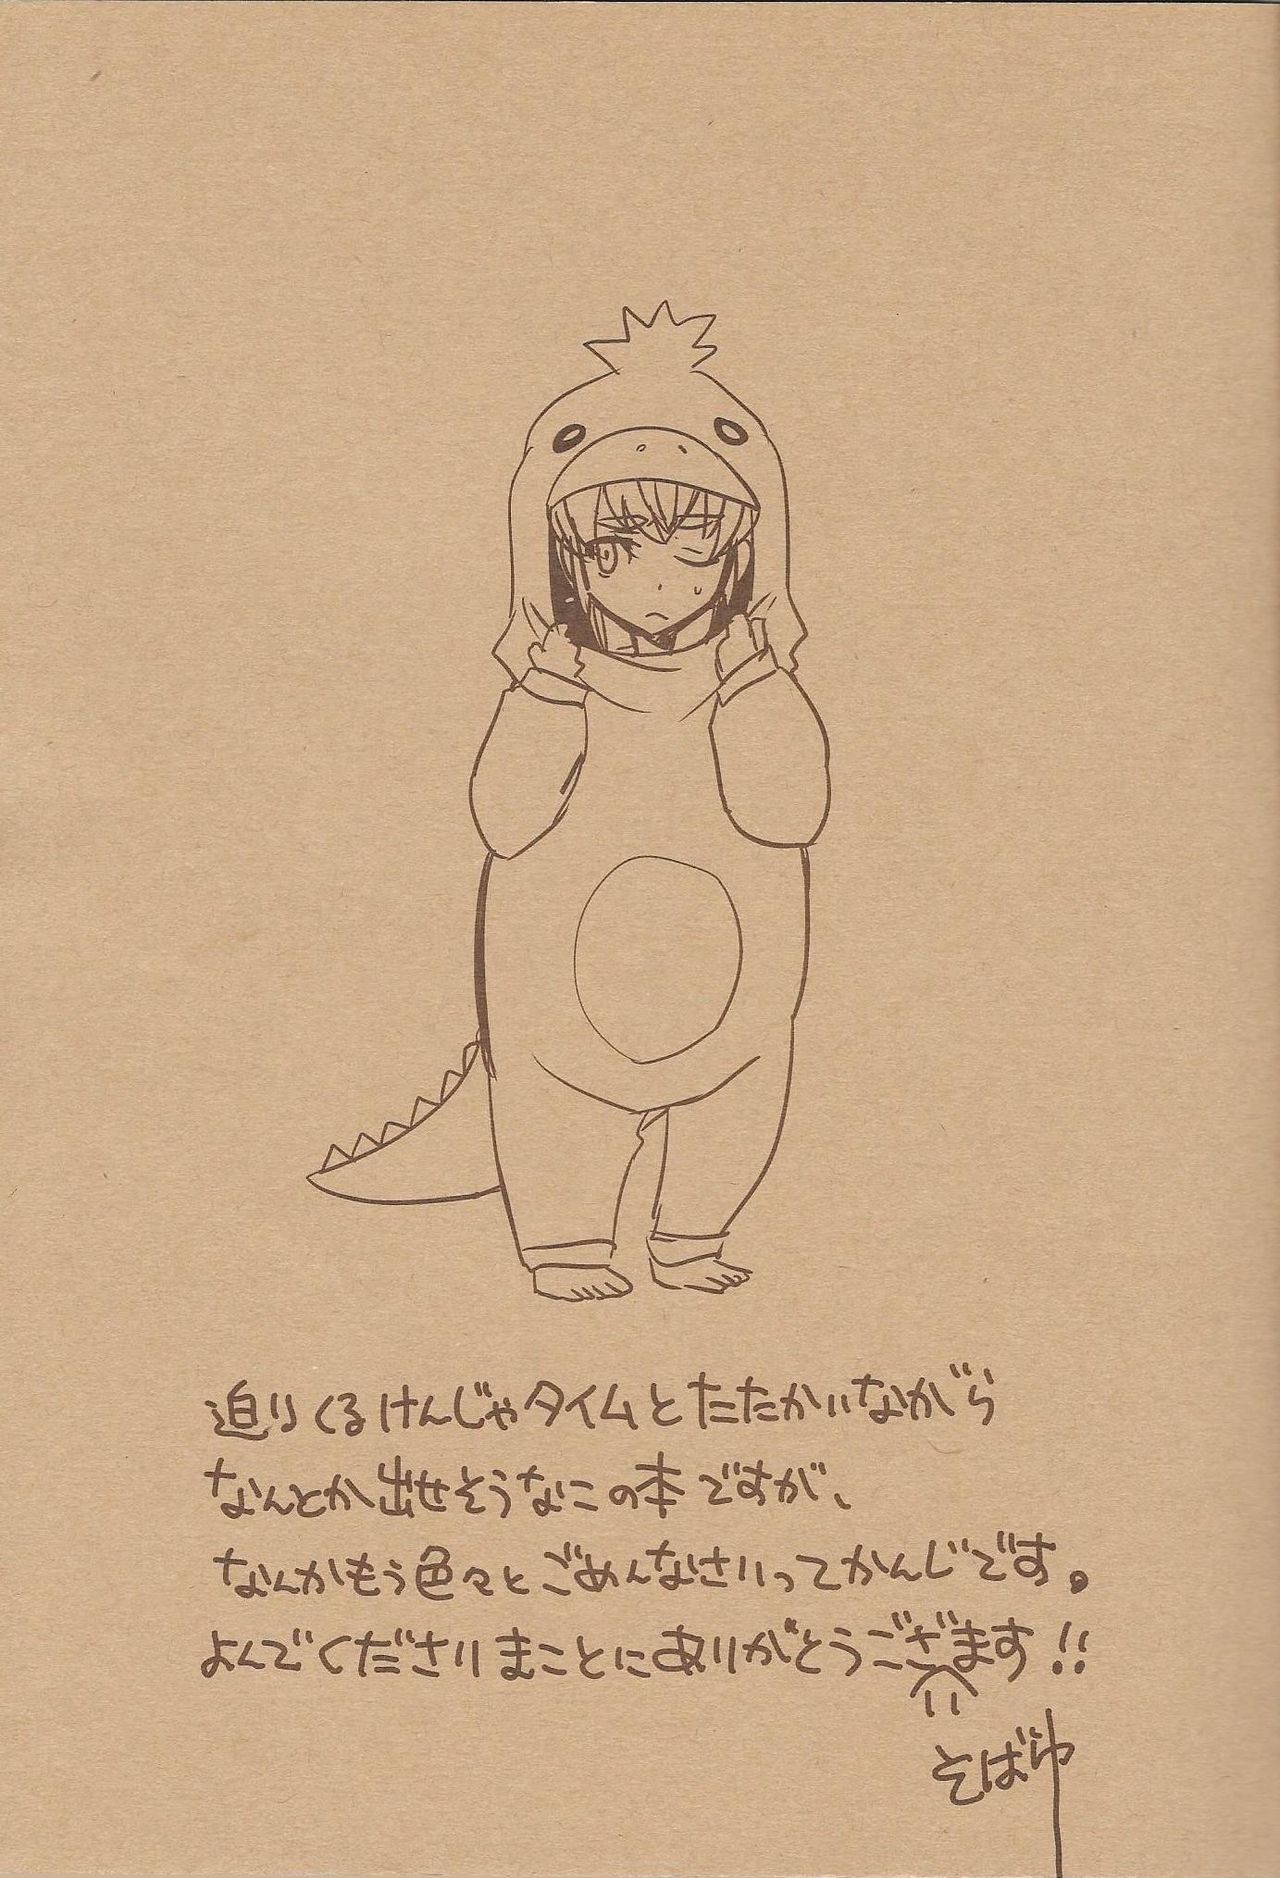 迫りくるけんじゃタイムとたたかいながら
なんとか出せそうなこの本ですが、
なんかもう色々とごめんなさいってかんじです。
よんでくださりまことにありがとうございます!!
い
そばゆ